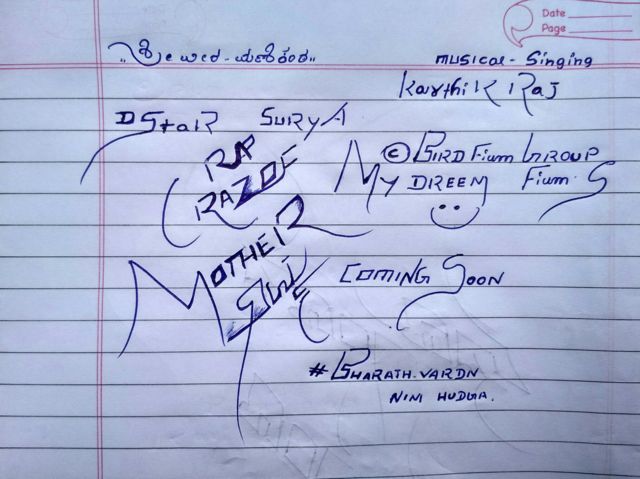 Date
Page
musical - Singing
Karthik Raj
D StaR SURYA
RAP
© BIRD Fium GROUP
RAZOE
MY DREEM Fiums
MOTHER
COMING SOON
#BHARATH.VARDN
NIM HUDGA.